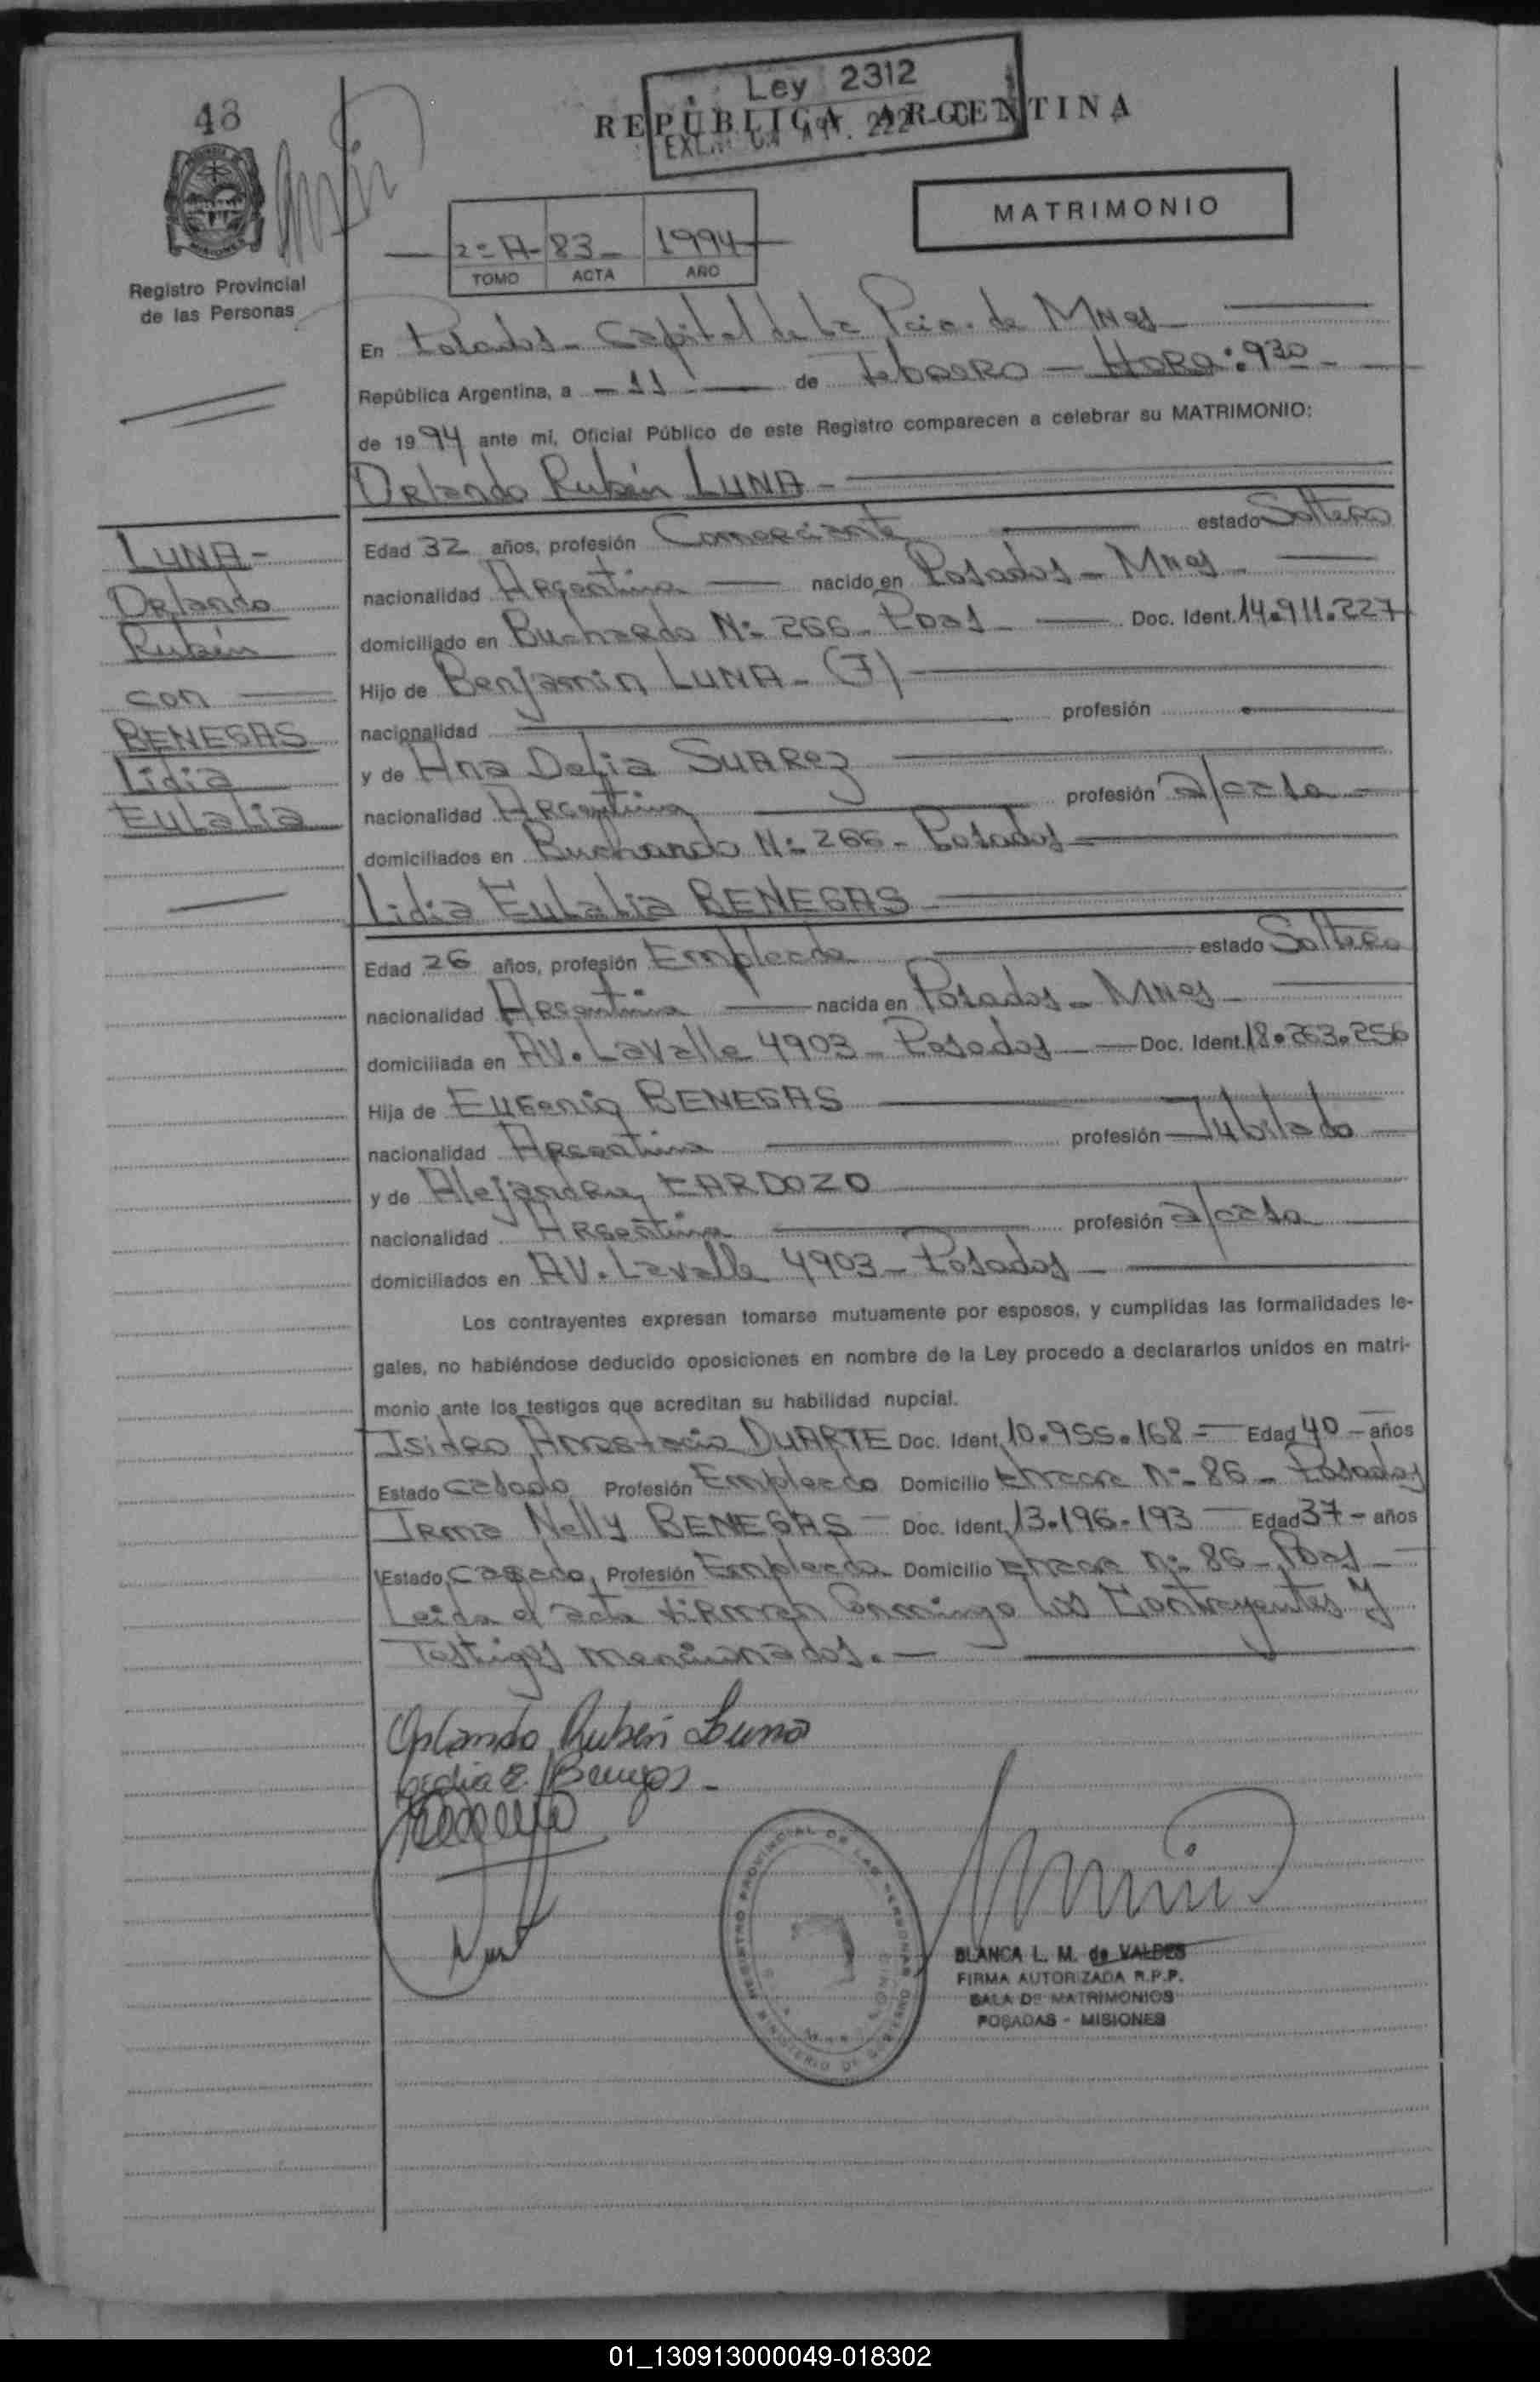 48
Ley 2312
REPUBLICA ARGENTINA
MATRIMONIO
2º A- 83- 1994
TOMO ACTA AÑO
Registro Provincial
de las Personas
En Posadas - Capital de la Pcia. de Mnes
República Argentina, a - 11 - de Febrero - HORA: 9 30 -
de 1994 ante mí, Oficial Público de este Registro comparecen a celebrar su MATRIMONIO:
Orlando Rubén LUNA -
Edad 32 años, profesión Comerciante estado Soltero
nacionalidad Argentina nacido en Posadas - Mnes -
domiciliado en Buchardo Nº 266 - Pdas - Doc. Ident. 14.911.227
Hijo de Benjamin LUNA - (F)
nacionalidad profesión
y de Ana Delia SUAREZ
nacionalidad Argentina profesión a/casa -
domiciliados en Buchardo Nº 266 - Posadas
LUNA -
Orlando
Rubén
con
BENEGAS
Lidia
Eulalia
Lidia Eulalia BENEGAS
Edad 26 años, profesión Empleada estado Soltera
nacionalidad Argentina nacida en Posadas - Mnes -
domiciliada en AV. Lavalle 4903 - Posadas - Doc. Ident. 18.263.256
Hija de Eugenio BENEGAS
nacionalidad Argentina profesión Jubilado
y de Alejandra CARDOZO
nacionalidad Argentina profesión a/casa
domiciliados en AV. Lavalle 4903 - Posadas -
Los contrayentes expresan tomarse mutuamente por esposos, y cumplidas las formalidades le-
gales, no habiéndose deducido oposiciones en nombre de la Ley procedo a declararlos unidos en matri-
monio ante los testigos que acreditan su habilidad nupcial.
Isidro Anastacio DUARTE Doc. Ident. 10.955.168 - Edad 40 - años
Estado casado Profesión Empleado Domicilio Chacra Nº 86 - Posadas
Irma Nelly BENEGAS - Doc. Ident. 13.196.193 Edad 37 - años
Estado casada, Profesión Empleada Domicilio Chacra Nº 86 - Pdas -
Leida el acta firman conmigo los Contrayentes y
Testigos mencionados. -
Orlando Rubén Luna
Lidia E. Benegas -
REGISTRO PROVINCIAL DE LAS PERSONAS
MINISTERIO DE GOBIERNO
BLANCA L. M. de VALDES
FIRMA AUTORIZADA R.P.P.
SALA DE MATRIMONIOS
POSADAS - MISIONES
01_130913000049-018302